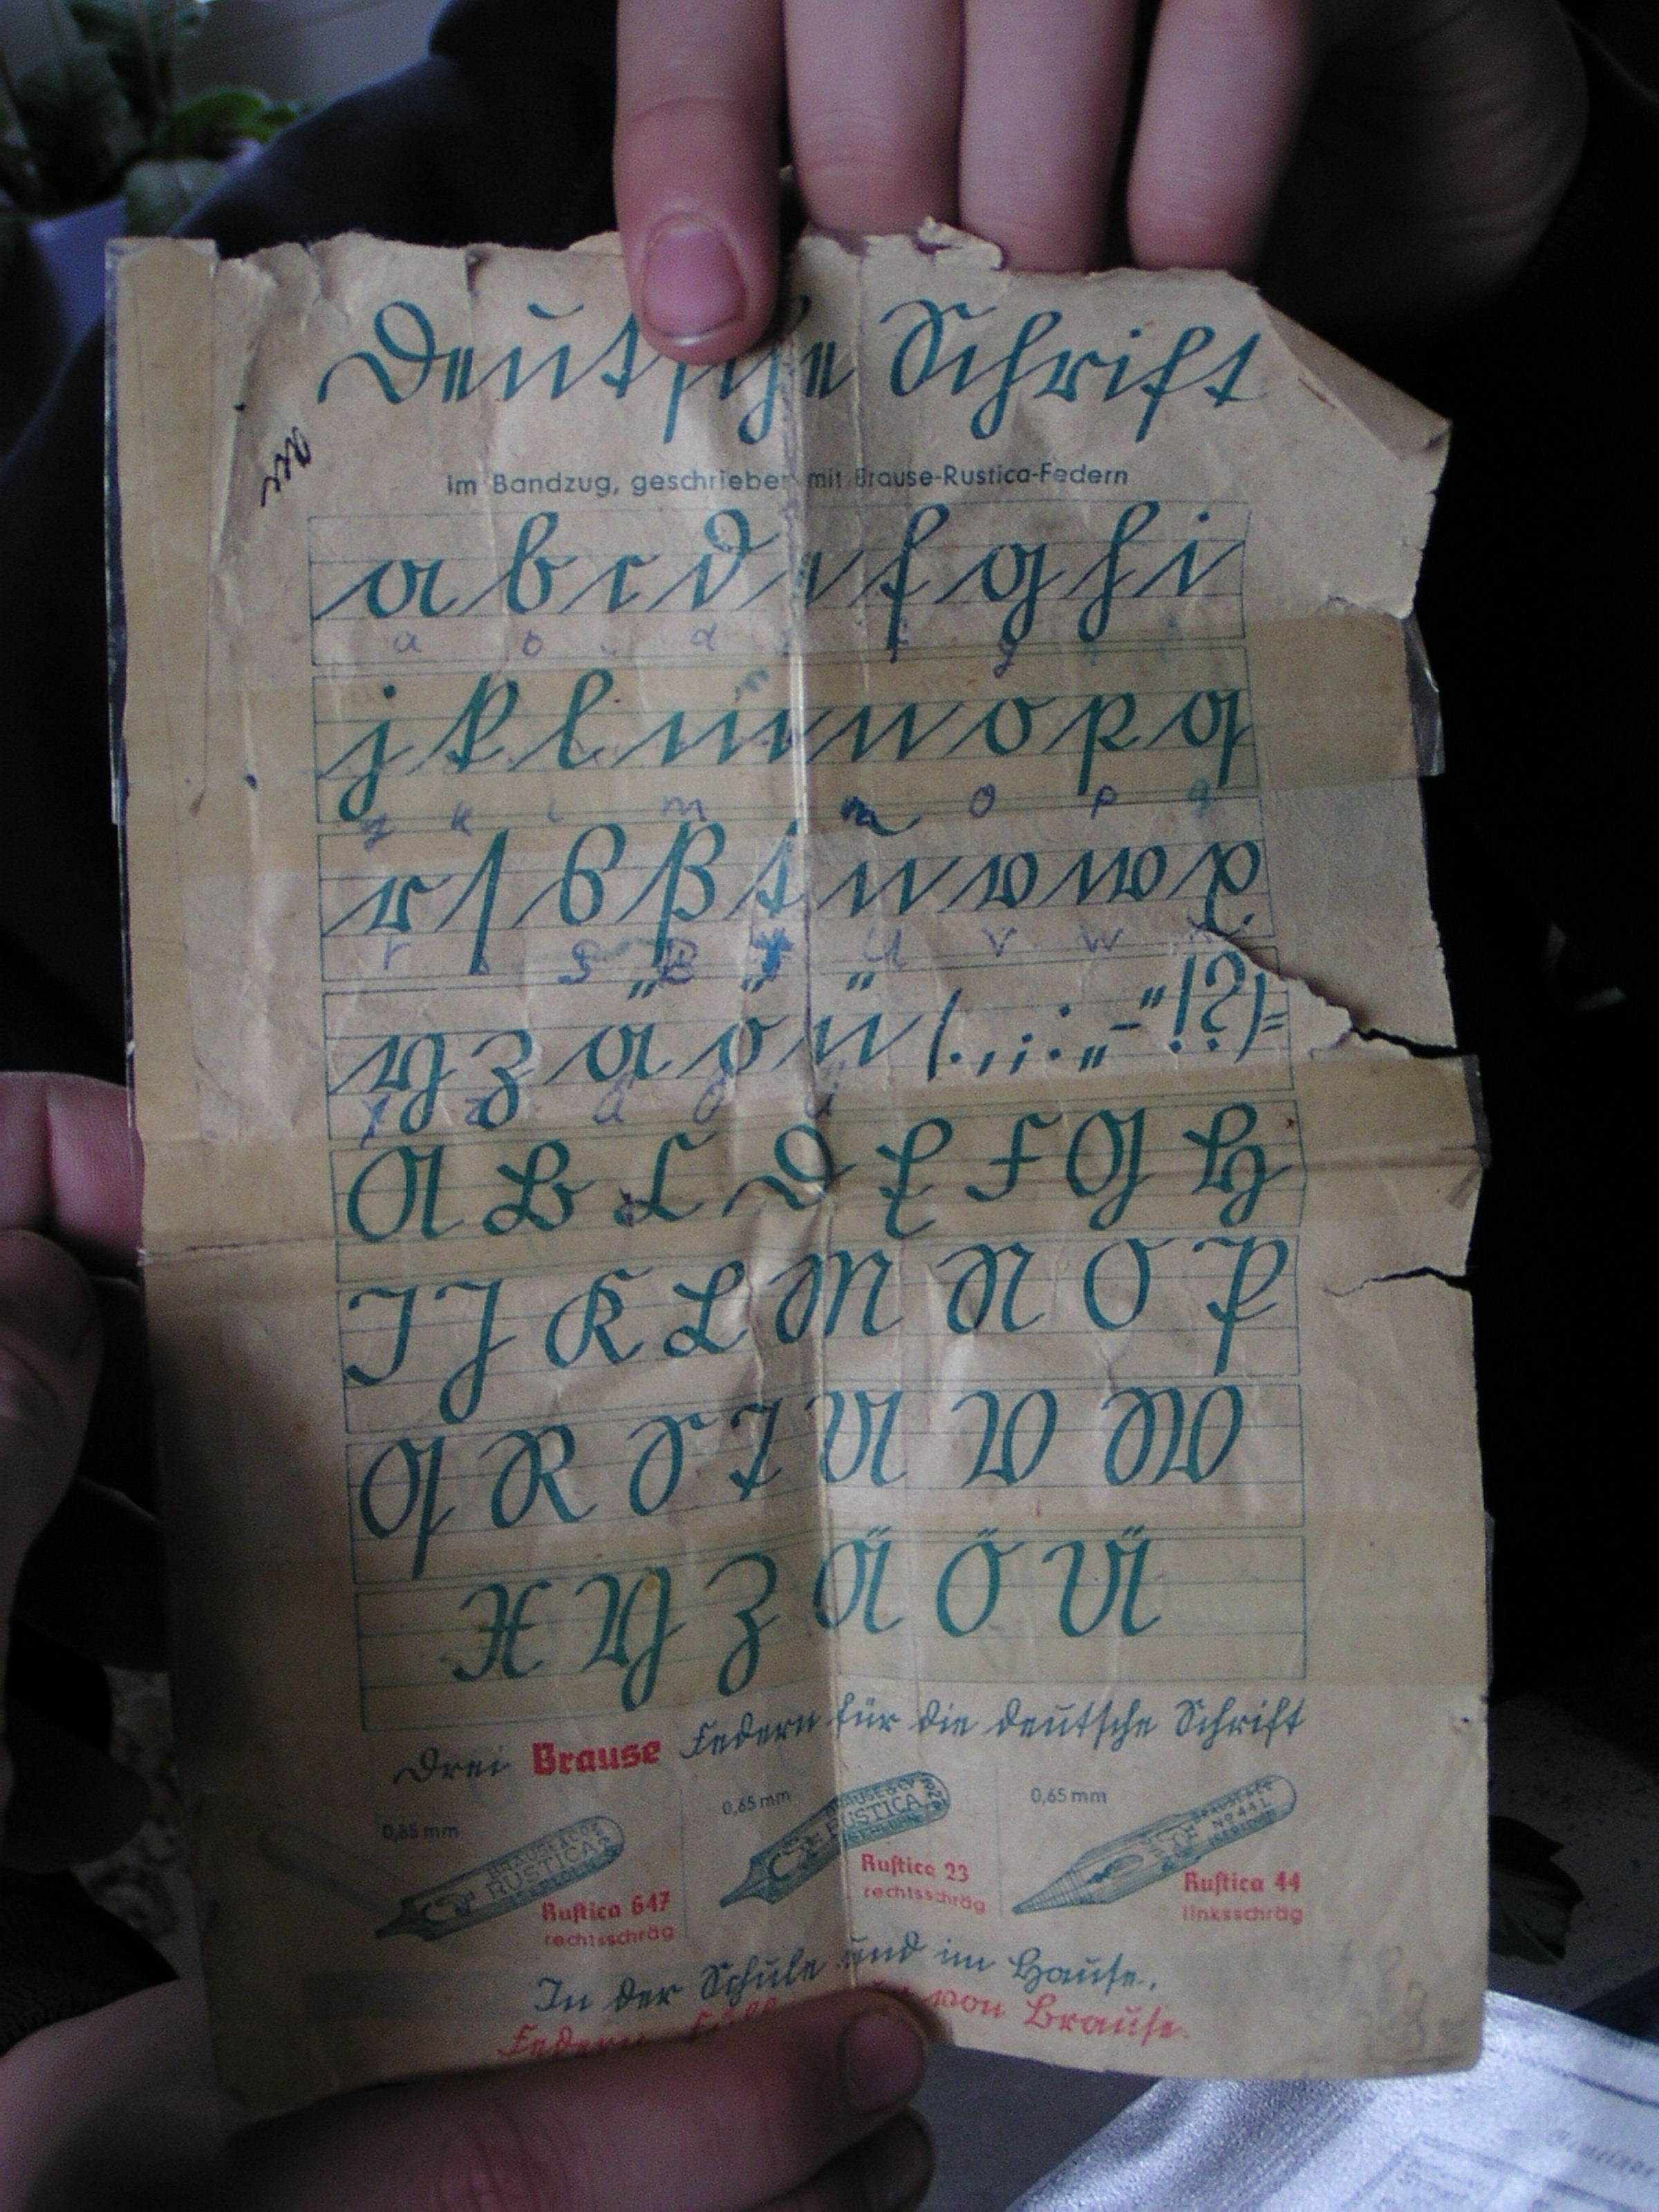 Deutsche Schrift
im Bandzug, geschrieben mit Brause-Rustica-Federn
a b c d e f g h i
a b d g
j k l m n o p q
k l m n o p q
r ſ s ß t u v w x
r s ß t u v w x
y z ä ö ü ( . , ; : „ - “ ! ? ( =
y z ä ö ü
A B C D E F G H
I J K L M N O P
Q R S T U V W
X Y Z Ä Ö Ü
Drei Brause Federn für die deutsche Schrift
0,85 mm 0,65 mm 0,65 mm
BRAUSE & Co RUSTICA ISERLOHN
BRAUSE & Co RUSTICA
BRAUSE & Co No 44 L ISERLOHN
Ruſtica 647 Ruſtica 23 Ruſtica 44
rechtsschräg rechtsschräg linksschräg
In der Schule und im Hauſe,
Federn von Brauſe.